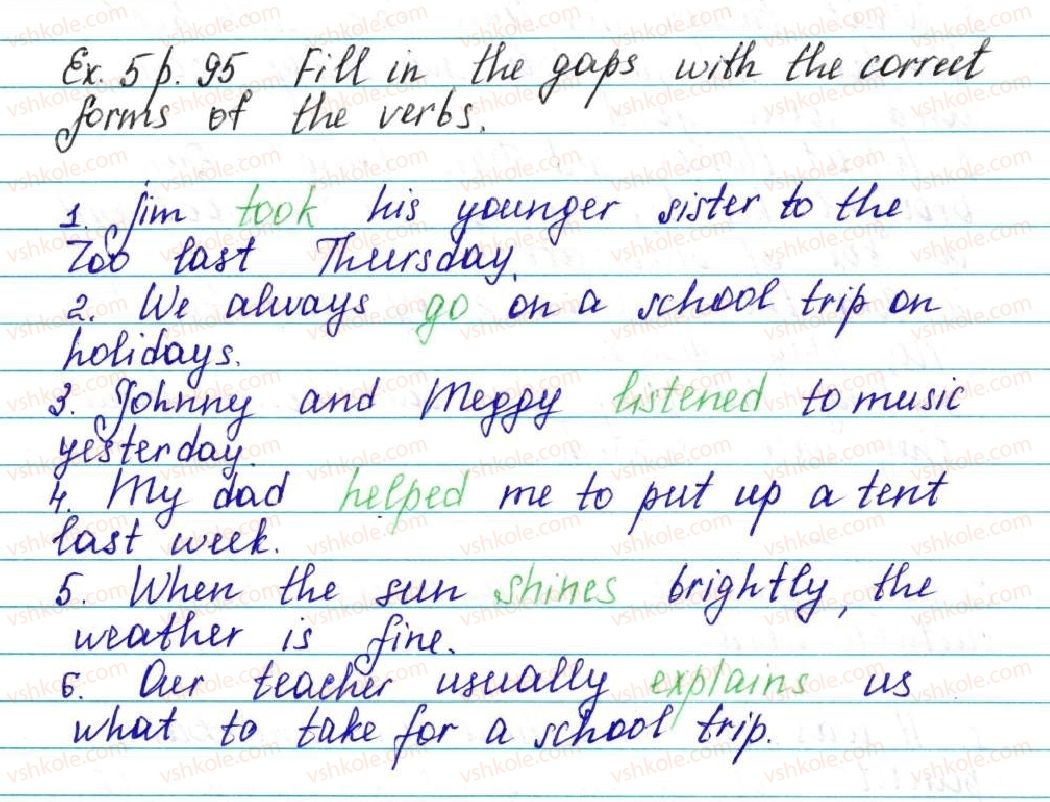 Ex. 5 p. 95 Fill in the gaps with the correct
forms of the verbs.
1. Jim took his younger sister to the
Zoo last Thursday.
2. We always go on a school trip on
holidays.
3. Johnny and Meggy listened to music
yesterday.
4. My dad helped me to put up a tent
last week.
5. When the sun shines brightly, the
weather is fine.
6. Our teacher usually explains us
what to take for a school trip.
vshkole.com